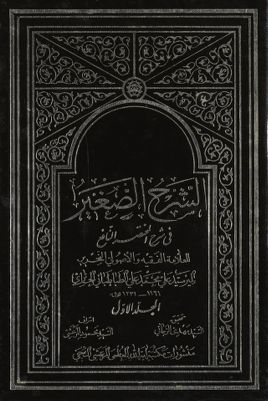 الشرح الصغير
في شرح المختصر النافع
للعلامة الفقيه والأصولي
السيد علي بن محمد علي الطباطبائي
١١٦١ - ١٢٣١
المجلد الأول
تحقيق
اشراف
السيد مهدي الرجائي
السيد محمود المرعشي
منشورات مكتبة آية الله العظمى المرعشي النجفي